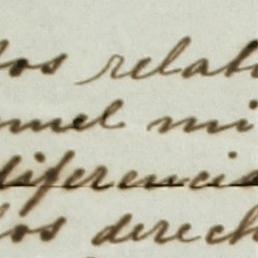 los relati
nuel mi
diferencia
los derech